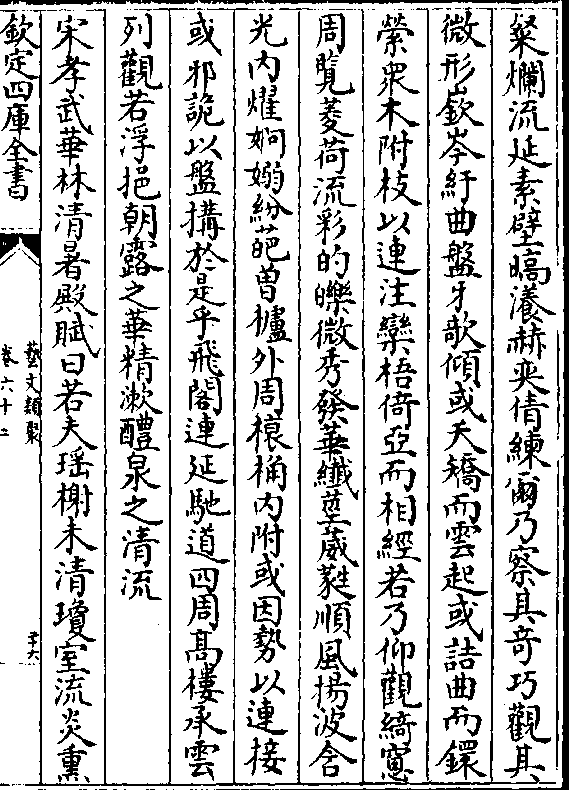 粲爛流延素壁暠瀁赫奕倩練爾乃察其竒巧觀其
微形嶔岑紆曲盤牙欹傾或夭矯而雲起或詰曲而鐶
縈衆木附枝以連注欒梧倚亞而相經若乃仰觀綺窻
周覽菱荷流彩的皪微秀發華纖莖葳蕤順風揚波含
光内燿婀嫋紛葩曽櫨外周榱桷内附或因勢以連接
或邪詭以盤搆於是乎飛閣連延馳道四周髙樓承雲
列觀若浮挹朝露之華精漱醴泉之清流
宋孝武華林清暑殿賦曰若夫瑶榭未清瓊室流炎熏
欽定四庫全書
藝文類聚
卷六十二